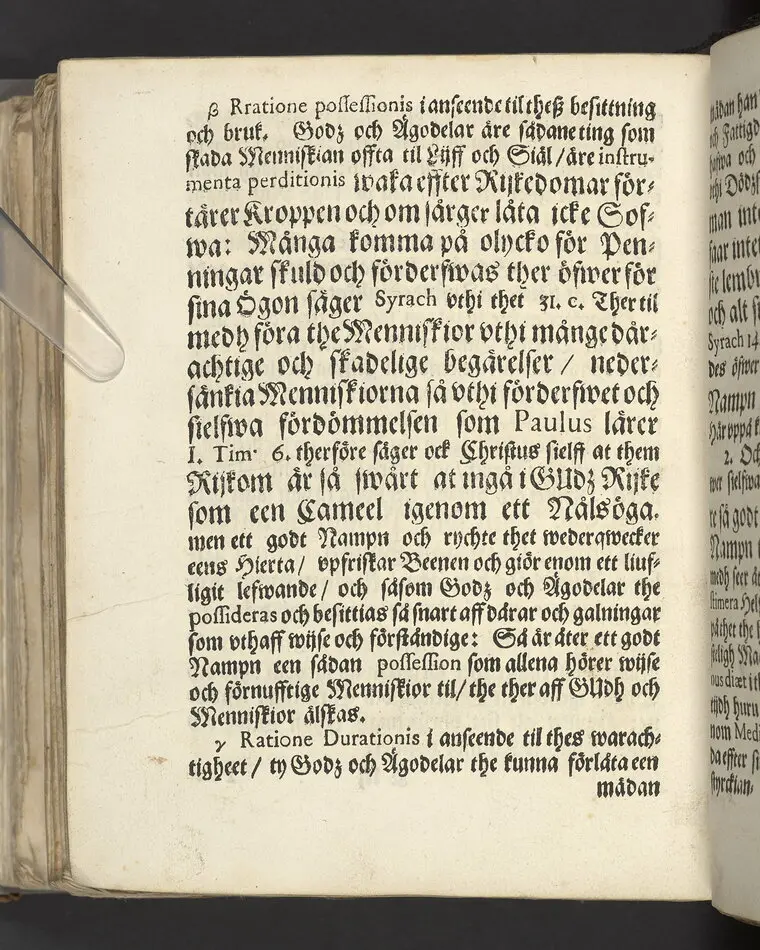 β Rratione possessionis i anseende til theß besittning
och bruk. Godz och Ägodelar äre sådane ting som
skada Menniskian offta til Lijff och Siäl / äre instru-
menta perditionis waka effter Rijkedomar för-
tärer Kroppen och om sårger låta icke Sof-
wa: Många komma på olycko för Pen-
ningar skuld och förderfwas ther öfwer för
sina Ögon säger Syrach vthi thet 31. c. Ther til
medh föra the Menniskior vthi månge dår-
achtige och skadelige begärelser / neder-
sänkia Menniskiorna så vthi förderfwet och
sielfwa fördömmelsen som Paulus lärer
I. Tim. 6. therföre säger ock Christus sielff at them
Rijkom är så swårt at ingå i GUdz Rijke
som een Cameel igenom ett Nålsöga.
men ett godt Nampn och rychte thet wederqwecker
eens Hierta / vpfriskar Beenen och giör enom ett liuf-
ligit lefwande / och såsom Godz och Ägodelar the
possideras och besittias så snart aff dårar och galningar
som vthaff wijse och förståndige: Så är åter ett godt
Nampn een sådan possession som allena hörer wijse
och förnufftige Menniskior til / the ther aff GUdh och
Menniskior älskas.
γ Ratione Durationis i anseende til thes warach-
tigheet / ty Godz och Ägodelar the kunna förlåta een
mädan
mädan han
och Fattigd
hafwa och
vthi Dödzs
man int
faar inte
och alt s
Syrach 14
des öfwer
Nampn
Här vppå k
2. Och
wer sielfwa
te så godt
Nampn
medh seer
stimera Hel
på thet the
seligh Ma
ous diæt i th
tijdh huru
nom Medi
da effter s
styrckian